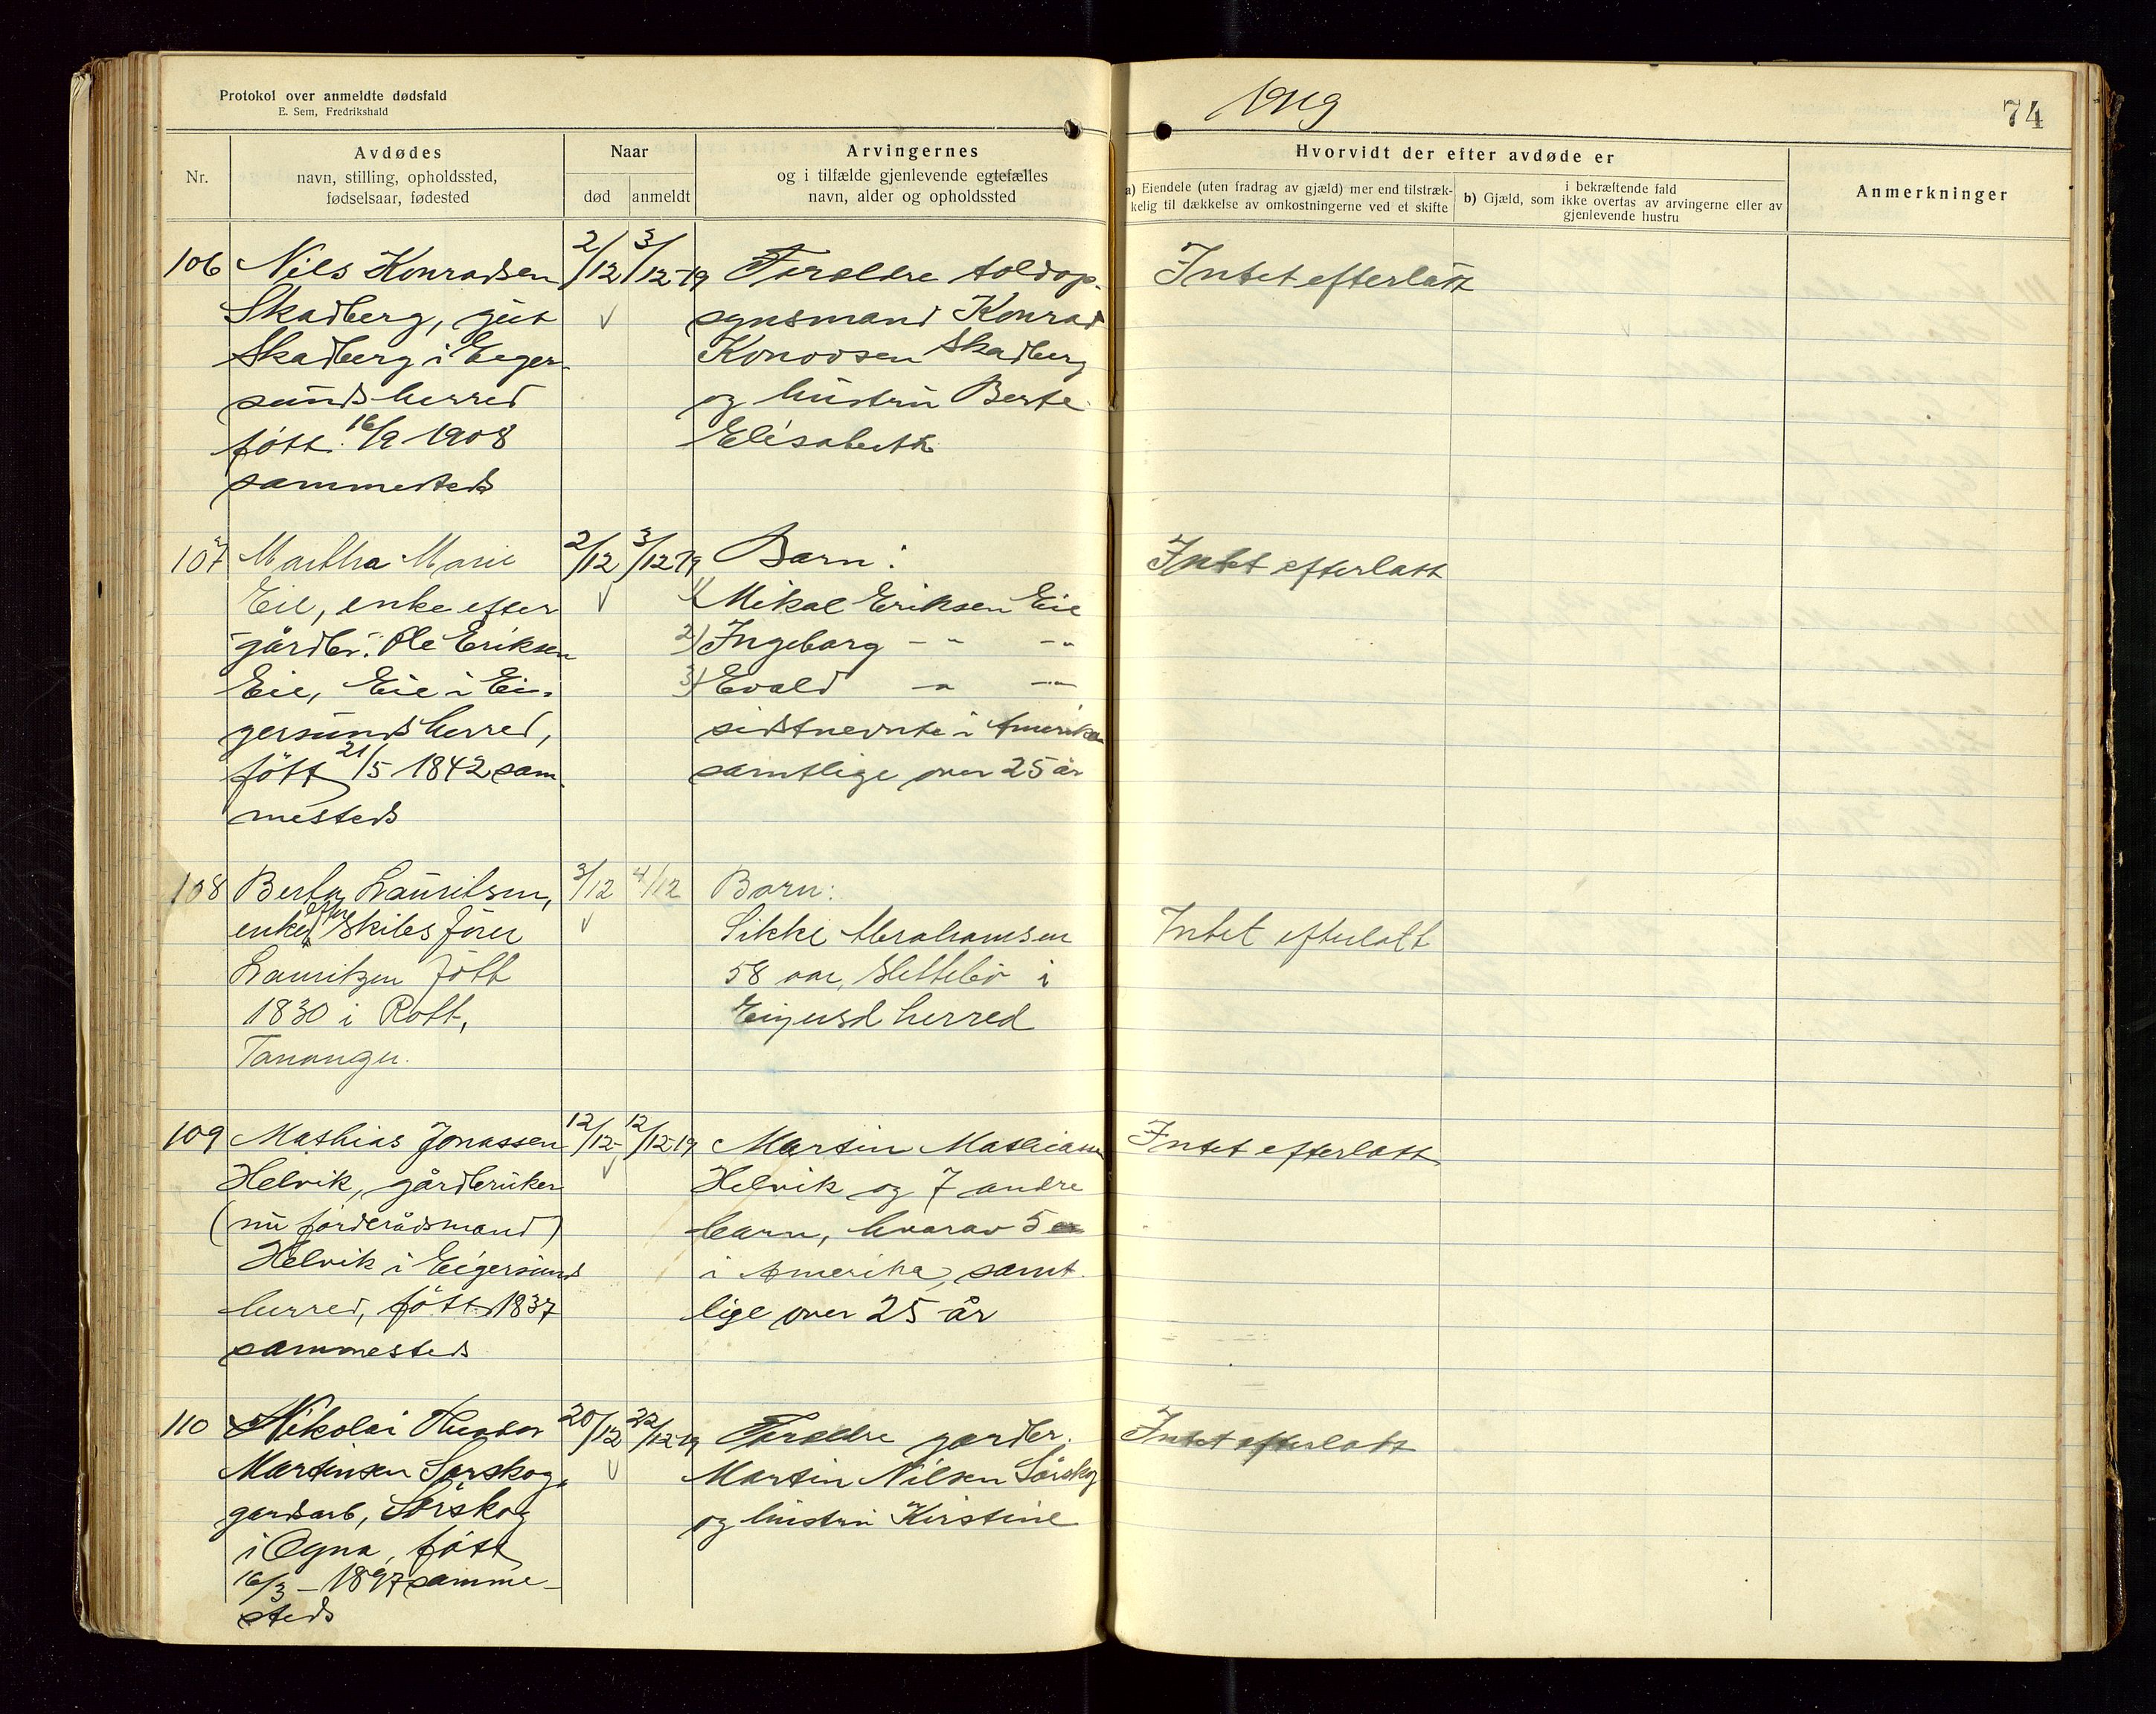 Protokol over anmeldte dødsfald
E. Sem, Fredrikshald
1919
74
Nr.
Avdødes
navn, stilling, opholdssted,
fødselsaar, fødested
Naar
død
anmeldt
Arvingernes
og i tilfælde gjenlevende egtefælles
navn, alder og opholdssted
Hvorvidt der efter avdøde er
a) Eiendele (uten fradrag av gjæld) mer end tilstræk-
kelig til dækkelse av omkostningerne ved et skifte
i bekræftende fald
b) Gjæld, som ikke overtas av arvingerne eller av
gjenlevende hustru
Anmerkninger
106
Nils Konradsen
Skadberg, gut
Skadberg i Eiger-
sunds herred
fött 16/9 1908
sammesteds
2/12
3/12-19
Foreldre toldop-
synsmand Konrad
Skadberg
og hustru Berte
Elisabeth
Intet efterlatt
107
Martha Marie
Eie, enke efter
gårdbr. Ole Eriksen
Eie, Eie i Ei-
gersunds herred,
fött 21/5 1842 sam-
mesteds
2/12
3/12-19
Barn:
1) Mikal Eriksen Eie
2) Ingeborg - " - "
3) Evald - " - "
sidstnevnte i Amerika
samtlige over 25 år
Intet efterlatt
108
Berta Lauritsen,
enke efter Skibsfører
Lauritzen född
1830 i Rott,
Tananger.
3/12
4/12
Barn:
Sikke Abrahamsen
58 aar, Slettebö i
Eigersd herred
Intet efterlatt
109
Mathias Jonassen
Helvik, gårdbruker
(nu förderådsmand)
Helvik i Eigersunds
herred, född 1837
sammesteds
12/12-
12/12-19
Martin Mathiasen
Helvik og 7 andre
barn, hvorav 5
i Amerika, samt-
lige over 25 år
Intet efterlatt
110
Nikolai Theodor
Martinsen Sörskog,
gardsarb, Sörskog
i Ogna, född
16/3 - 1897 samme-
steds
20/12
22/12-19
Foreldre gardbr.
Martin Nilsen Sörskog
og hustru Kirstine
Intet efterlatt